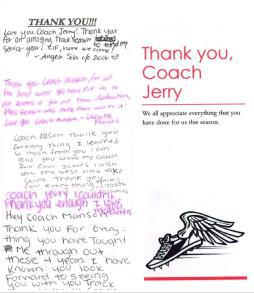 THANK YOU!!!
Love you Coach Jerry! Thank you
for an amazing Track season to end my
senior year!
Thank you Coach Manson, for all
the hard work you have put in to
our teams &
Coach Manson thank you
for every thing I learned
so much from you. I am
glad you were my coach
for four years I wish
you the best and take
care Thank you
for every thing
coach Jerry I can't
thank you enough I love
Hey Coach Manson
Thank You For Every-
thing you have Taught
Me through out
these 4 years I have
Known you look
Forward to seeing
you with you Track
Thank you,
Coach
Jerry
We all appreciate everything that you
have done for us this season.